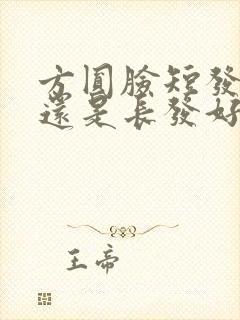 方圓臉短發
還是長發好
王帝